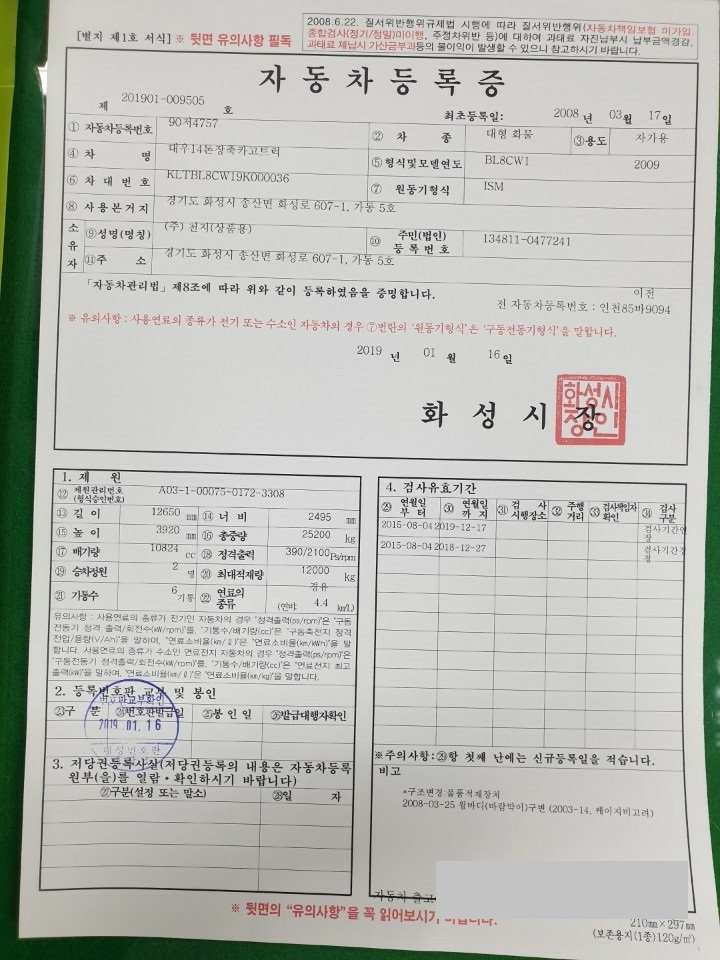 [별지 제1호 서식] ※ 뒷면 유의사항 필독
2008.6.22. 질서위반행위규제법 시행에 따라 질서위반행위(자동차책임보험 미가입,
종합검사(정기/정밀)미이행, 주정차위반 등)에 대하여 과태료 자진납부시 납부금액경감,
과태료 체납시 가산금부과등의 불이익이 발생할 수 있으니 참고하시기 바랍니다.
자동차등록증
제 201901-009505 호
최초등록일: 2008 년 03 월 17 일
① 자동차등록번호 90저4757 ② 차 종 대형 화물 ③용도 자가용
④ 차 명 대우14톤장축카고트럭 ⑤ 형식및모델연도 BL8CW1 2009
⑥ 차 대 번 호 KLTBL8CW19K000036 ⑦ 원동기형식 ISM
⑧ 사용본거지 경기도 화성시 송산면 화성로 607-1, 가동 5호
소유자 ⑨성명(명칭) (주) 천지(상품용) ⑩ 주민(법인)등록번호 134811-0477241
⑪주 소 경기도 화성시 송산면 화성로 607-1, 가동 5호
「자동차관리법」 제8조에 따라 위와 같이 등록하였음을 증명합니다.
이전
전 자동차등록번호 : 인천85바9094
※ 유의사항 : 사용연료의 종류가 전기 또는 수소인 자동차의 경우 ⑦번란의 '원동기형식'은 '구동전동기형식'을 말합니다.
2019 년 01 월 16 일
화 성 시 장
화성시장인
1. 제 원
⑫ 제원관리번호(형식승인번호) A03-1-00075-0172-3308
⑬ 길 이 12650 mm ⑭ 너 비 2495 mm
⑮ 높 이 3920 mm ⑯ 총중량 25200 kg
⑰ 배기량 10824 cc ⑱ 정격출력 390/2100 Ps/rpm
⑲ 승차정원 2 명 ⑳ 최대적재량 12000 kg
㉑ 기통수 6 기통 ㉒ 연료의 종류 경유 (연비) 4.4 km/L
유의사항 : 사용연료의 종류가 전기인 자동차의 경우 "정격출력(ps/rpm)"은 "구동
전동기 정격 출력/회전수(kW/rpm)"를, "기통수/배기량(cc)"은 "구동축전지 정격
전압/용량(V/Ah)"을 말하며, "연료소비율(km/ℓ)"은 "연료소비율(km/kWh)"을 말
합니다. 사용연료의 종류가 수소인 연료전지 자동차의 경우 "정격출력(ps/rpm)"은
"구동전동기 정격출력/회전수(kW/rpm)"를, "기통수/배기량(cc)"은 "연료전지 최고
출력(kW)"을 말하며, "연료소비율(km/ℓ)"은 "연료소비율(km/kg)"을 말합니다.
2. 등록번호판 교부 및 봉인
㉓구 분 ㉔번호판발급일 ㉕봉 인 일 ㉖발급대행자확인
번호판교부확인
2019. 01. 16
3. 저당권등록사실(저당권등록의 내용은 자동차등록
원부(을)를 열람·확인하시기 바랍니다)
㉗구분(설정 또는 말소) ㉘일 자
4. 검사유효기간
㉙ 연월일부터 ㉚ 연월일까지 ㉛ 검사시행장소 ㉜ 주행거리 ㉝ 검사책임자확인 ㉞ 검사구분
2015-08-04 2019-12-17 검사기간연장
2015-08-04 2018-12-27
※주의사항:㉙항 첫째 난에는 신규등록일을 적습니다.
비고
*구조변경:물품적재장치
2008-03-25 윙바디(바람막이)구변 (2003-14, 케이지비고려)
자동차 출고
※ 뒷면의 "유의사항"을 꼭 읽어보시기 바랍니다.
210㎜×297㎜
(보존용지(1종)120g/㎡)